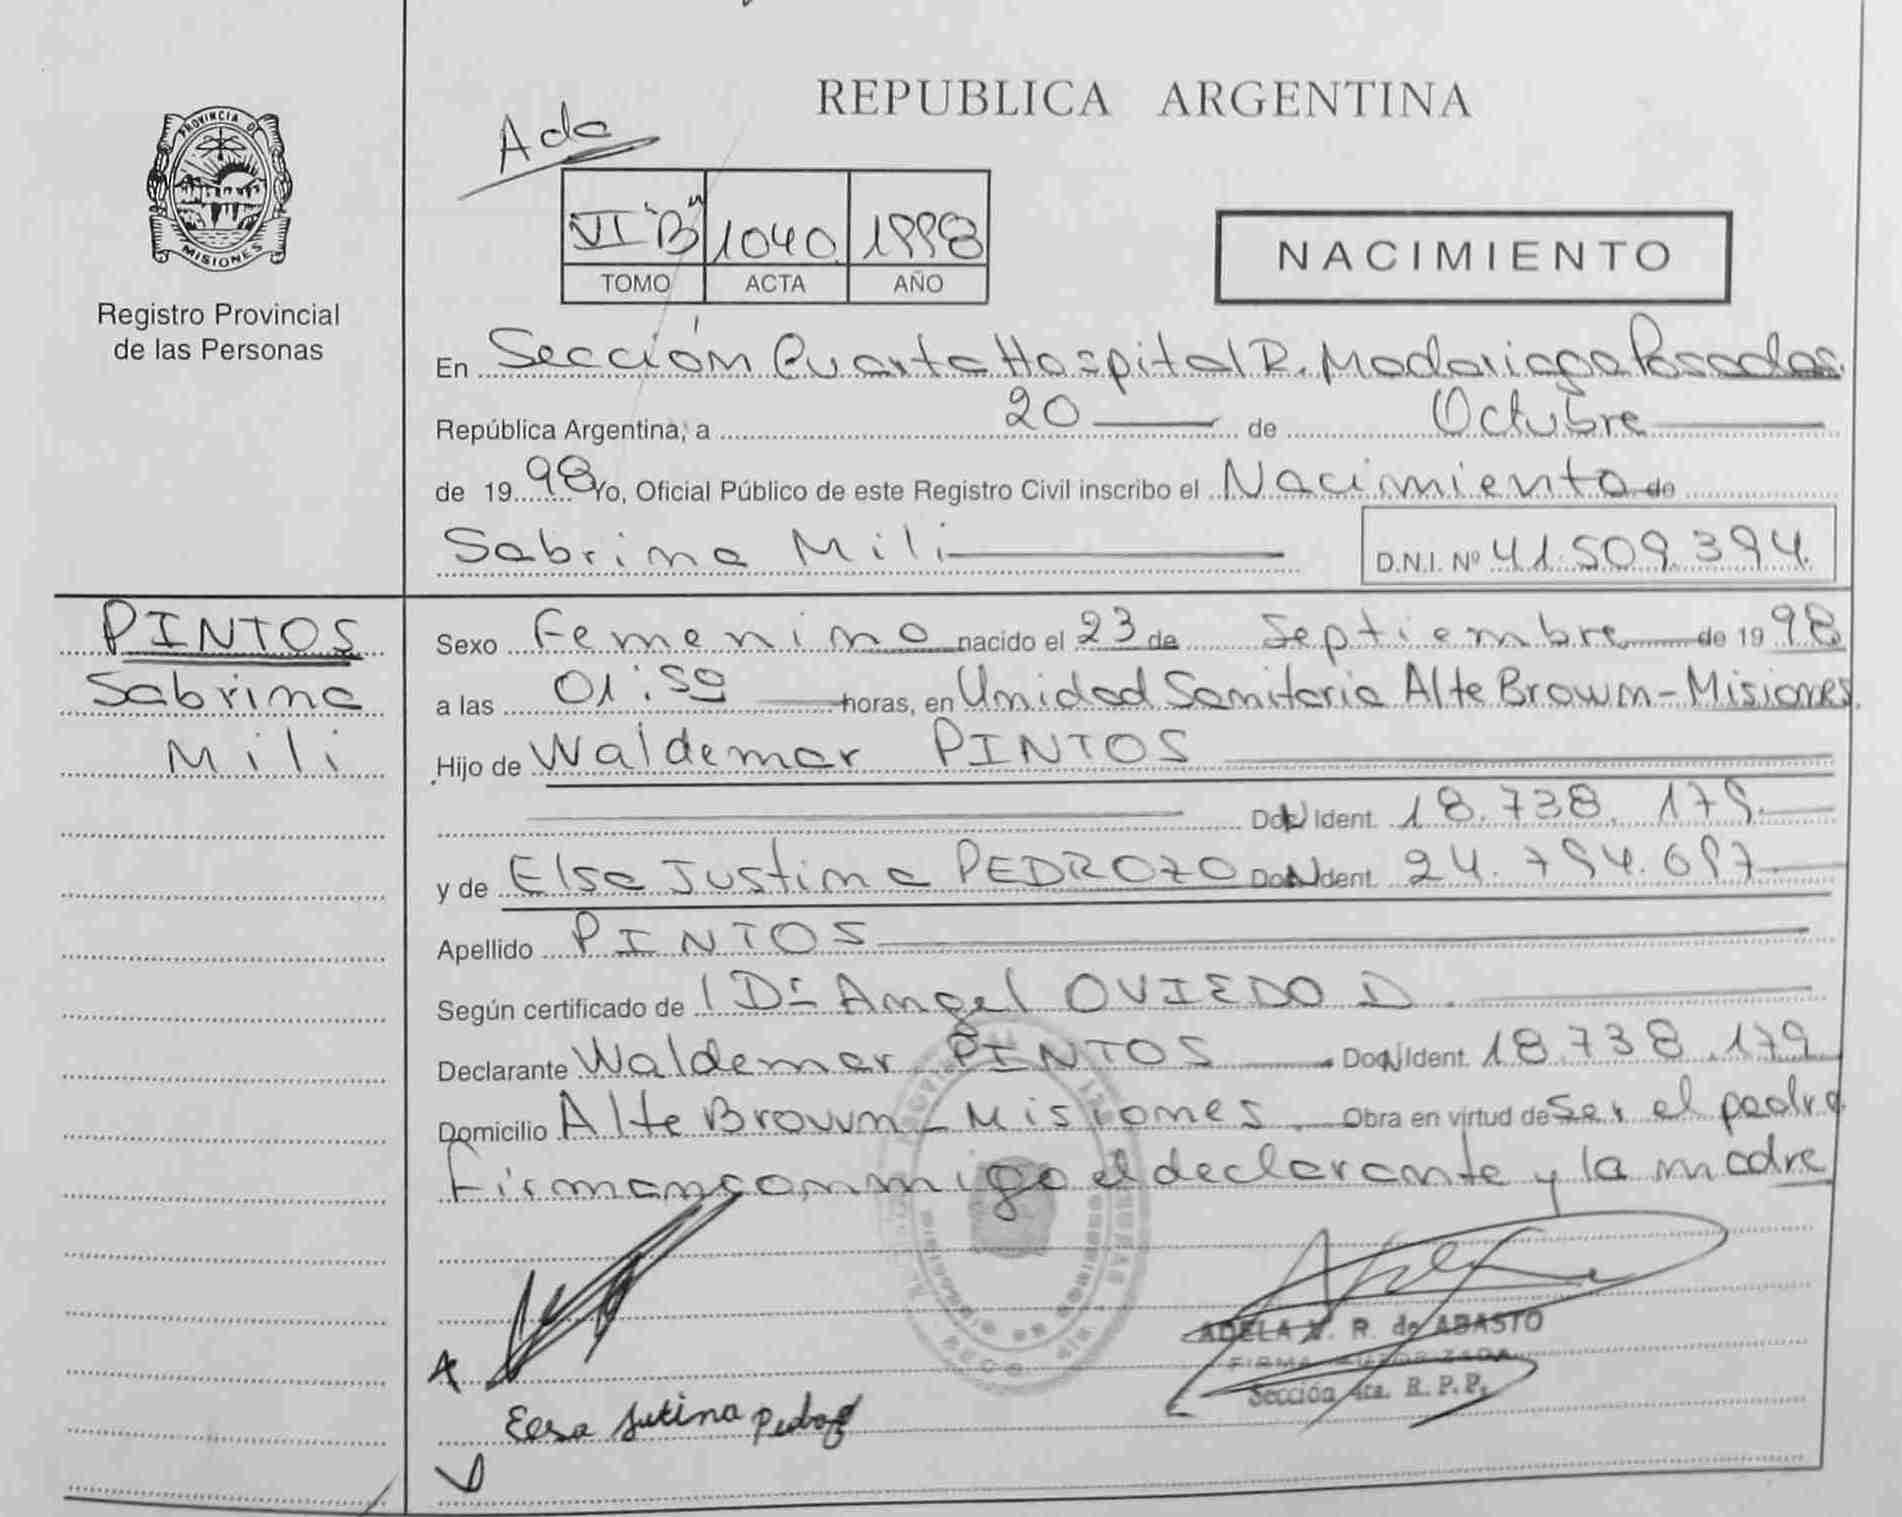 REPUBLICA ARGENTINA
PROVINCIA DE
MISIONES
Registro Provincial
de las Personas
Ada
VI "B" 1040 1998
TOMO ACTA AÑO
NACIMIENTO
En Sección Cuarta Hospital R. Madariaga Posadas.
República Argentina, a 20 de Octubre
de 1998 Yo, Oficial Público de este Registro Civil inscribo el Nacimiento de
Sabrina Mili D.N.I. Nº 41.509.394.
PINTOS
Sabrina
Mili
Sexo Femenino nacido el 23 de Septiembre de 1998
a las 01:50 horas, en Unidad Sanitaria Alte Brown - Misiones.
Hijo de Waldemar PINTOS
Doc Ident. 18.738.179.
y de Elsa Justina PEDROZO Doc Ident. 24.794.697
Apellido PINTOS
Según certificado de Dr Angel OVIEDO D.
Declarante Waldemar PINTOS Doc Ident. 18.738.179
Domicilio Alte Brown - Misiones. Obra en virtud de Ser el padre
Firman conmigo el declarante y la madre
ADELA V. R. de ABASTO
FIRMA AUTORIZADA
Sección 4ta. R.P.P.
Elsa Jutina